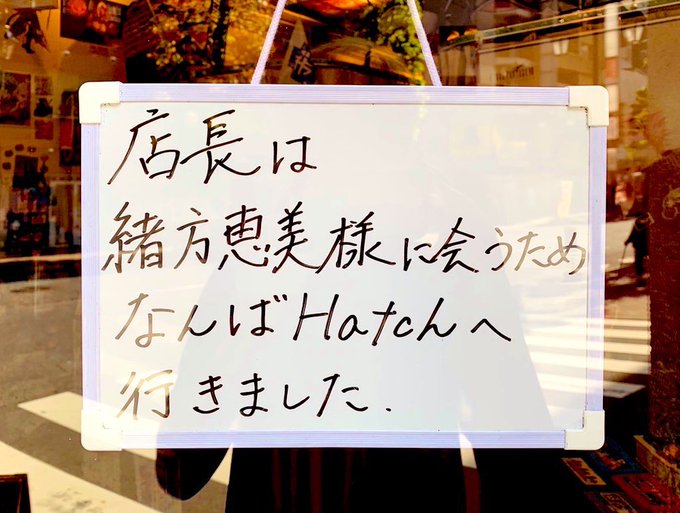 店長は
緒方恵美様に会うため
なんばHatchへ
行きました.